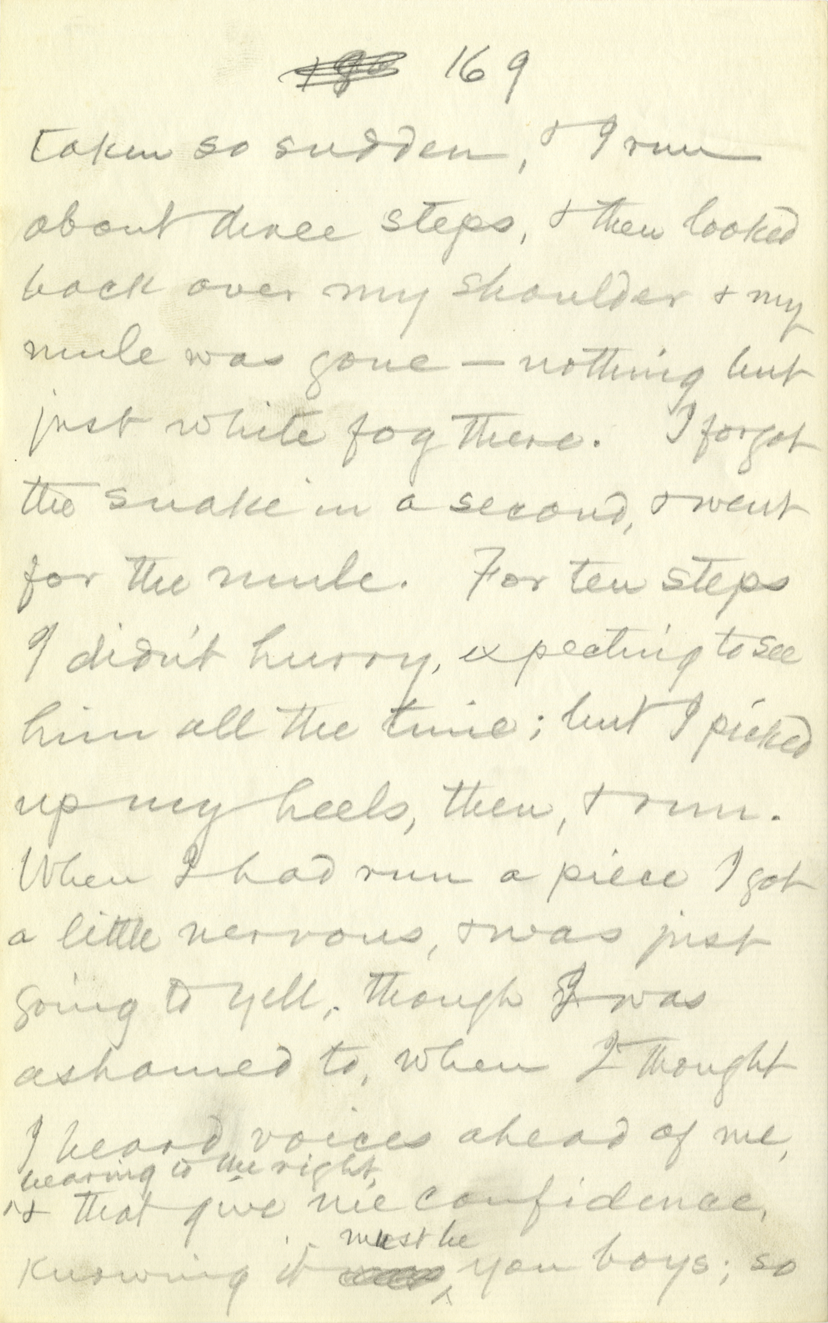 169
taken so sudden, & I run
about three steps, & then looked
back over my shoulder & my
mule was gone — nothing but
just white fog there. I forgot
the snake in a second, & went
for the mule. For ten steps
I didn't hurry, expecting to see
him all the time; but I picked
up my heels, then, & run.
When I had run a piece I got
a little nervous, & was just
going to yell, though I was
ashamed to, when I thought
I heard voices ahead of me,
bearing to the right,
& that give me confidence,
must be
knowing it you boys; so